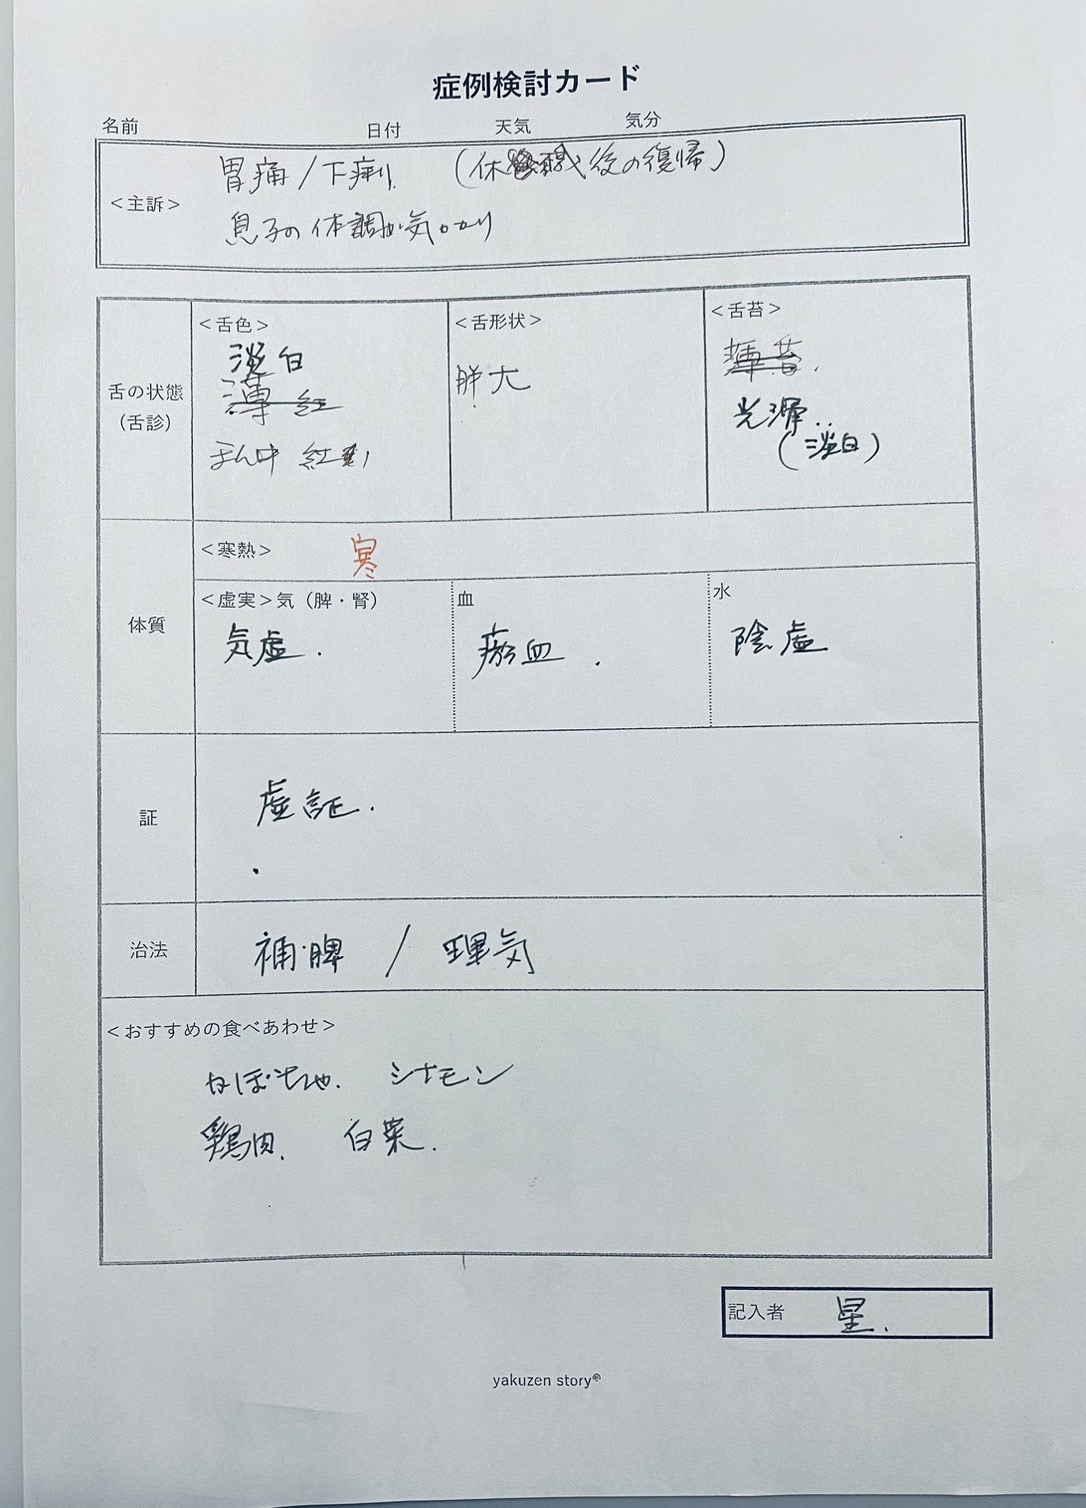 症例検討カード
名前 日付 天気 気分
<主訴>
胃痛/下痢 (休職後の復帰)
息子の体調が気がかり
舌の状態
(舌診)
<舌色>
淡白
薄紅
まん中 紅
<舌形状>
胖大
<舌苔>
薄苔.
光滑..
(淡白)
体質
<寒熱> 寒
<虚実>気(脾・腎)
気虚.
血
瘀血.
水
陰虚
証
虚証.
治法
補脾 / 理気
<おすすめの食べあわせ>
かぼちゃ. シナモン
鶏肉. 白菜.
記入者 星.
yakuzen story®